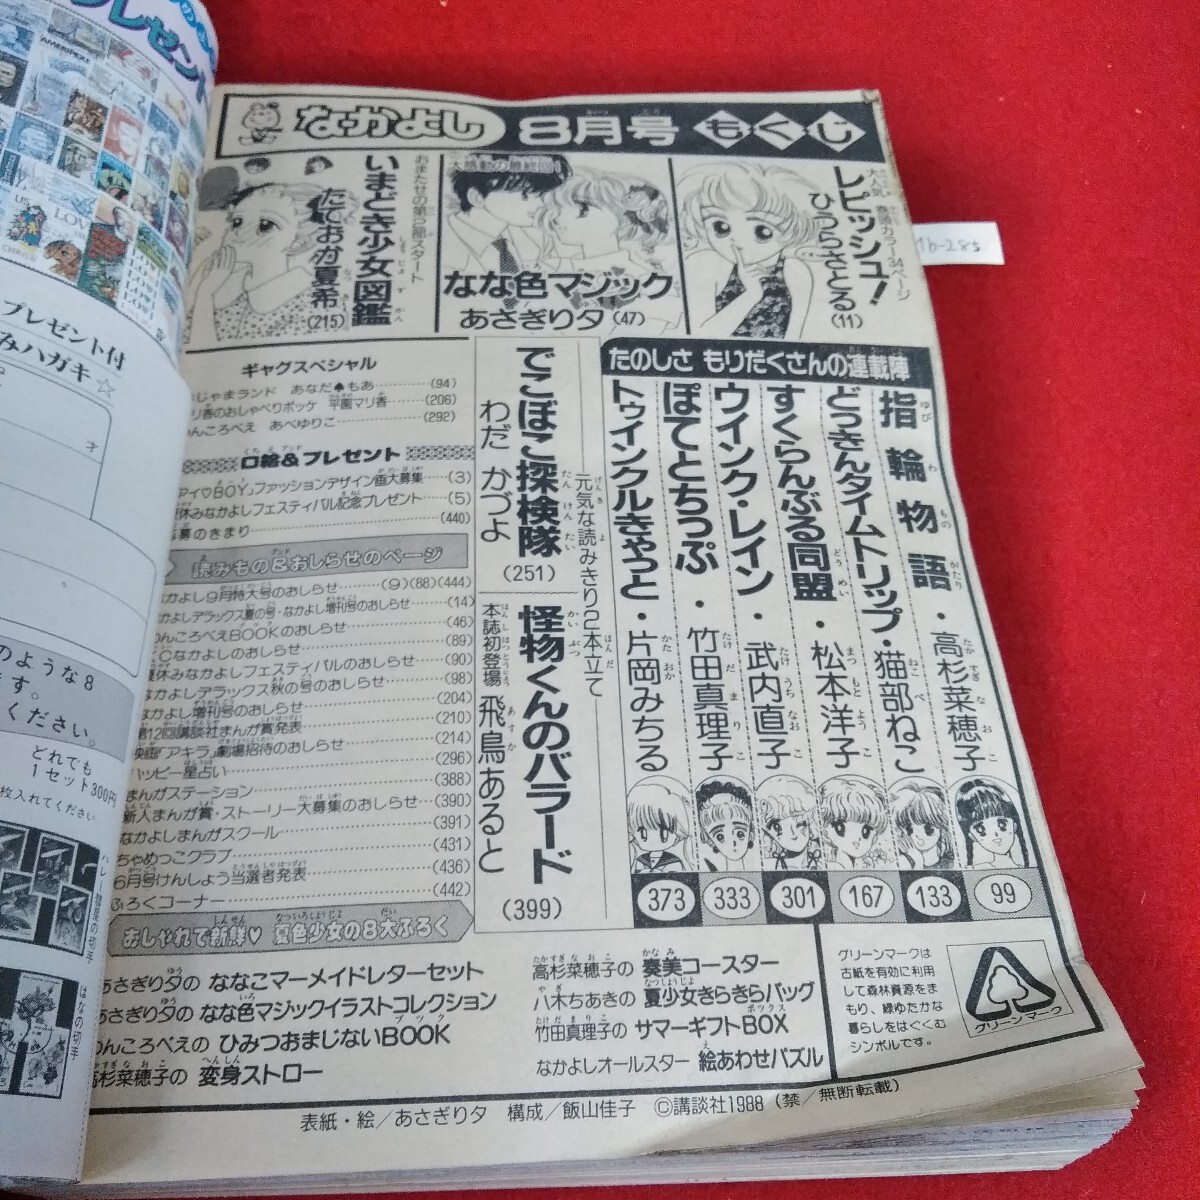 なかよし 8月号 もくじ
大人気 巻頭カラー34ページ
レピッシュ!
ひうらさとる
(11)
大感動の最終回!
なな色マジック
あさぎり夕 (47)
おまたせの第2部スタート
いまどき少女図鑑
たておか夏希
(215)
たのしさ もりだくさんの連載陣
指輪物語・高杉菜穂子
99
どっきんタイムトリップ・猫部ねこ
133
すくらんぶる同盟・松本洋子
167
ウインク・レイン・武内直子
301
ぽてとちっぷ・竹田真理子
333
トゥインクルきゃっと・片岡みちる
373
元気な読みきり2本立て
でこぼこ探検隊
わだ かづよ
(251)
怪物くんのバラード
本誌初登場 飛鳥あると
(399)
ギャグスペシャル
じゃまランド あなだ♠もあ (94)
リ香のおしゃべりポッケ 平園マリ香 (206)
んころべえ あべゆりこ (292)
口絵&プレゼント
アイ♡BOY」ファッションデザイン画大募集 (3)
休みなかよしフェスティバル記念プレゼント (5)
募のきまり (440)
読みもの&おしらせのページ
なかよし9月特大号のおしらせ (9)(88)(444)
かよしデラックス夏の号・なかよし増刊号のおしらせ (14)
んころべえBOOKのおしらせ (46)
Cなかよしのおしらせ (89)
夏休みなかよしフェスティバルのおしらせ (90)
なかよしデラックス秋の号のおしらせ (98)
なかよし増刊号のおしらせ (204)
第12回講談社まんが賞発表 (210)
映画「アキラ」劇場招待のおしらせ (214)
ハッピー星占い (296)
まんがステーション (388)
新人まんが賞・ストーリー大募集のおしらせ (390)
なかよしまんがスクール (391)
ちゃめっこクラブ (431)
6月号けんしょう当選者発表 (436)
ふろくコーナー (442)
おしゃれで新鮮♡ 夏色少女の8大ふろく
あさぎり夕の ななこマーメイドレターセット
あさぎり夕の なな色マジックイラストコレクション
わんころべえの ひみつおまじないBOOK
高杉菜穂子の 変身ストロー
高杉菜穂子の 奏美コースター
八木ちあきの 夏少女きらきらバッグ
竹田真理子の サマーギフトBOX
なかよしオールスター 絵あわせパズル
グリーンマークは
古紙を有効に利用
して森林資源をま
もり、緑ゆたかな
暮らしをはぐくむ
シンボルです。
グリーンマーク
表紙・絵/あさぎり夕 構成/飯山佳子 ©講談社1988 (禁/無断転載)
プレゼント
AMERIPEX
US
LOVE
プレゼント付
みハガキ☆
才
のような8
す。
ください。
どれでも
1セット300円
枚入れてください
ハレー彗星の切手
はなの切手